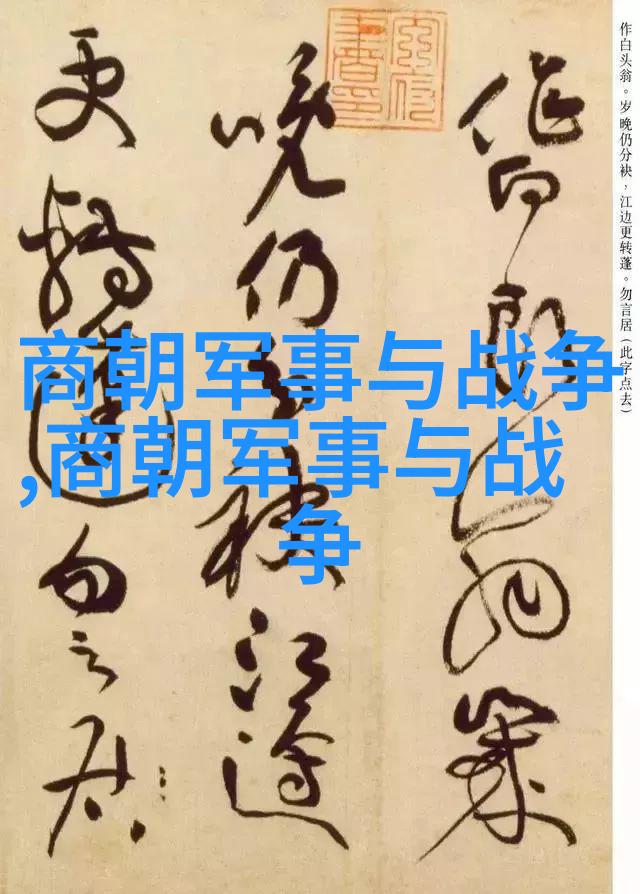 作白头翁。岁晚仍分袂,江边更转蓬。勿言居(此字点去)
作白頭翁歲
晚仍分袂江邊
更轉蓬勿言居
商朝军事与战争
,商朝军事与战
争